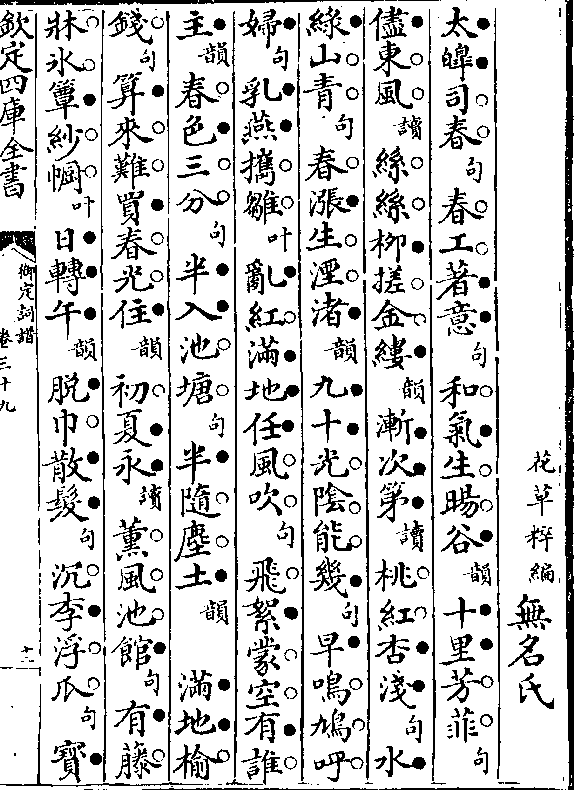 花草粹編 無名氏
太皥司春句春工著意句和氣生暘谷韻十里芳菲句
儘東風讀絲絲柳搓金縷韻漸次第讀桃紅杏淺句水
綠山青句春漲生湮渚韻九十光陰能幾句早鳴鳩呼
婦句乳燕攜雛叶亂紅滿地任風吹句飛絮蒙空有誰
主韻春色三分句半入池塘句半隨塵土韻 滿地榆
錢句算來難買春光住韻初夏永讀薰風池館句有藤
牀冰簟紗幮叶日轉午韻脱巾散髮句沉李浮瓜句寳
欽定四庫全書
御定詞譜
卷三十九
十二